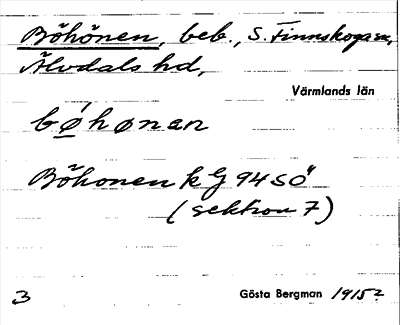 Böhönen, beb., S. Finnskoga sn,
Älvdals hd,
Värmlands län
bǿhønan
Böhonen k G 94 SÖ
(sektion 7)
3
Gösta Bergman 1915?